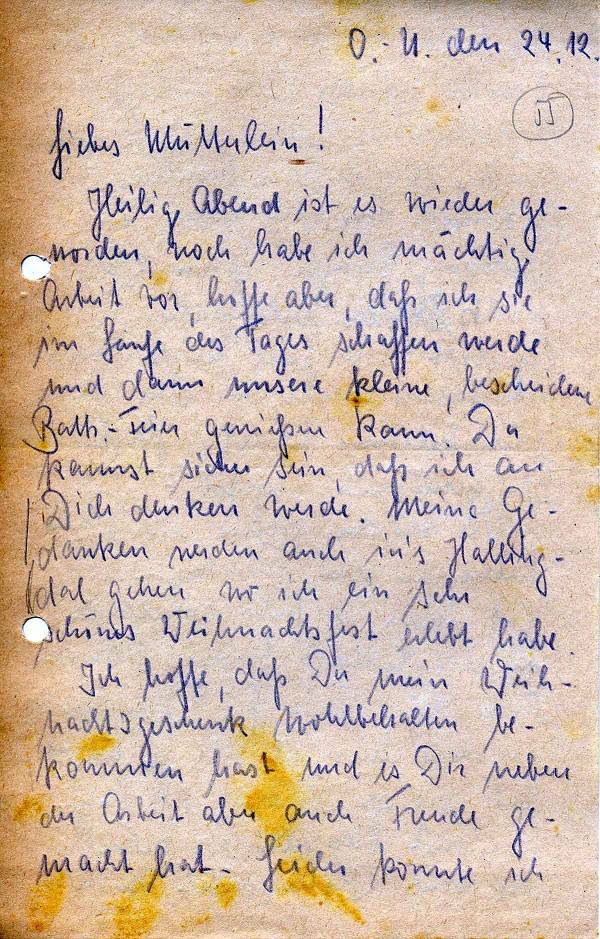 O.-U. den 24.12.
Liebes Mütterlein!
Heilig Abend ist es wieder ge-
worden, noch habe ich mächtig
Arbeit vor, hoffe aber, daß ich sie
im Laufe des Tages schaffen werde
und dann unsere kleine, bescheidene
Battr.-Feier genießen kann. Du
kannst sicher sein, daß ich an
Dich denken werde. Meine Ge-
danken werden auch in's Halling-
dal gehen wo ich ein sehr
schönes Weihnachtsfest erlebt habe.
Ich hoffe, daß Du mein Weih-
nachtsgeschenk wohlbehalten be-
kommen hast und es Dir neben
der Arbeit aber auch Freude ge-
macht hat. Leider konnte ich